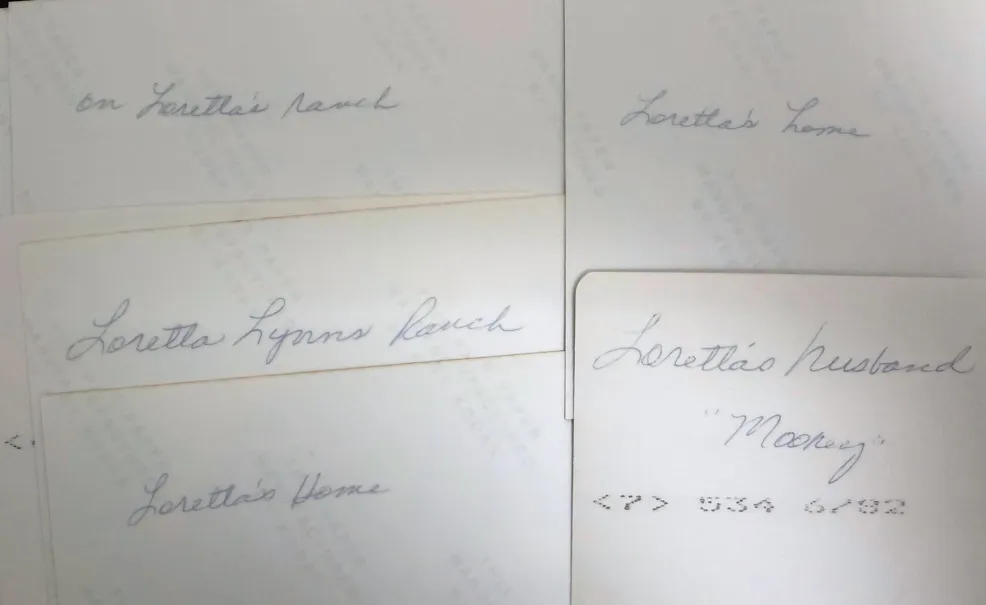 on Loretta's ranch
Loretta's home
Loretta Lynns Ranch
Loretta's husband
"Mooney"
<7> 534 6/82
Loretta's Home